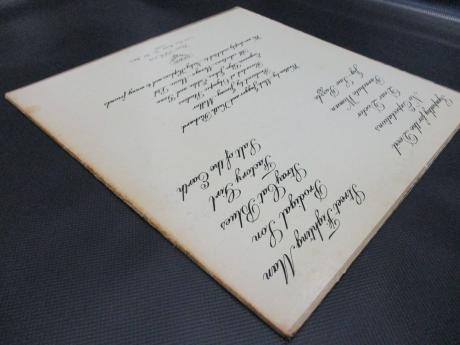 Sympathy for the Devil
No Expectations
Dear Doctor
Parachute Woman
Jig-Saw Puzzle
Street Fighting Man
Prodigal Son
Stray Cat Blues
Factory Girl
Salt of the Earth
Written by
Mick Jagger and Keith Richard
Produced by Jimmy Miller
Recorded at Olympic Studios
We are deeply indebted to Nicky Hopkins and to many friends